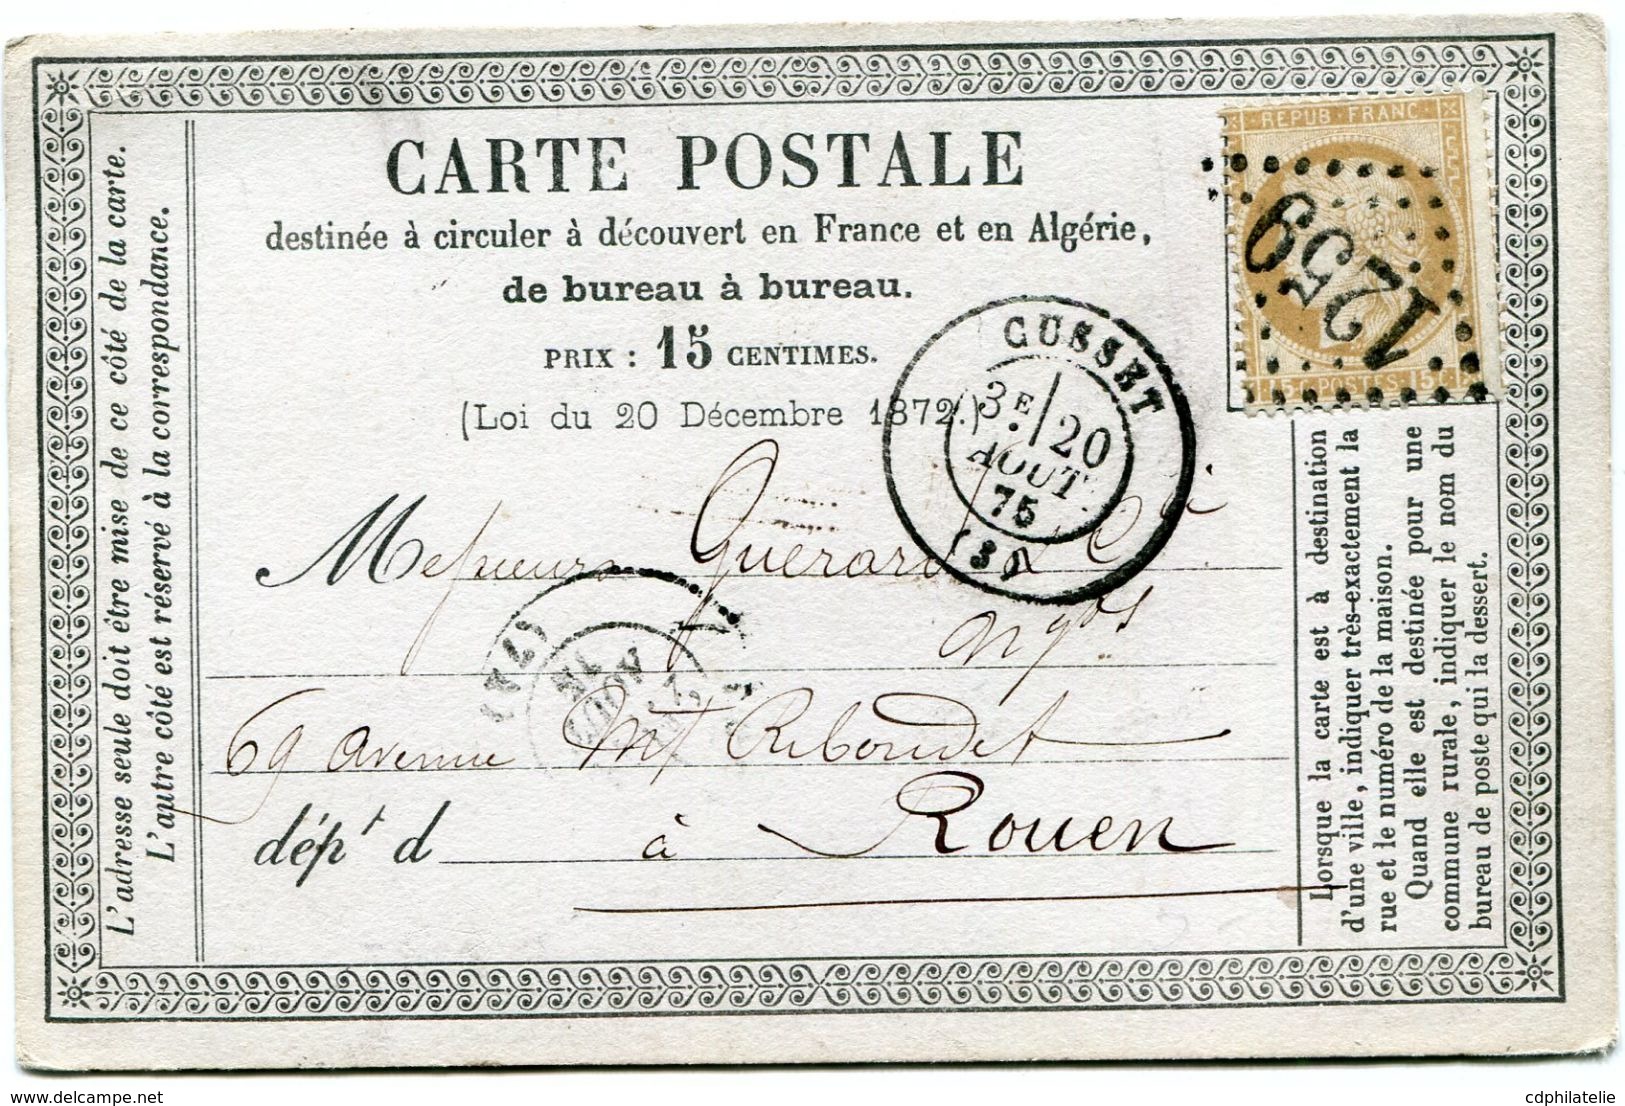 CARTE POSTALE
destinée à circuler à découvert en France et en Algérie,
de bureau à bureau.
PRIX : 15 CENTIMES.
(Loi du 20 Décembre 1872.)
REPUB · FRANC ·
15 c POSTES 15 c
1259
CUSSET
3E 20
AOUT
75
(3)
Messieurs Guerard & Cie
Ngos
69 avenue Mt Riboudet
dépt d à Rouen
L'adresse seule doit être mise de ce côté de la carte.
L'autre côté est réservé à la correspondance.
Lorsque la carte est à destination
d'une ville, indiquer très-exactement la
rue et le numéro de la maison.
Quand elle est destinée pour une
commune rurale, indiquer le nom du
bureau de poste qui la dessert.
AOUT
75
(74)
cdphilatelie